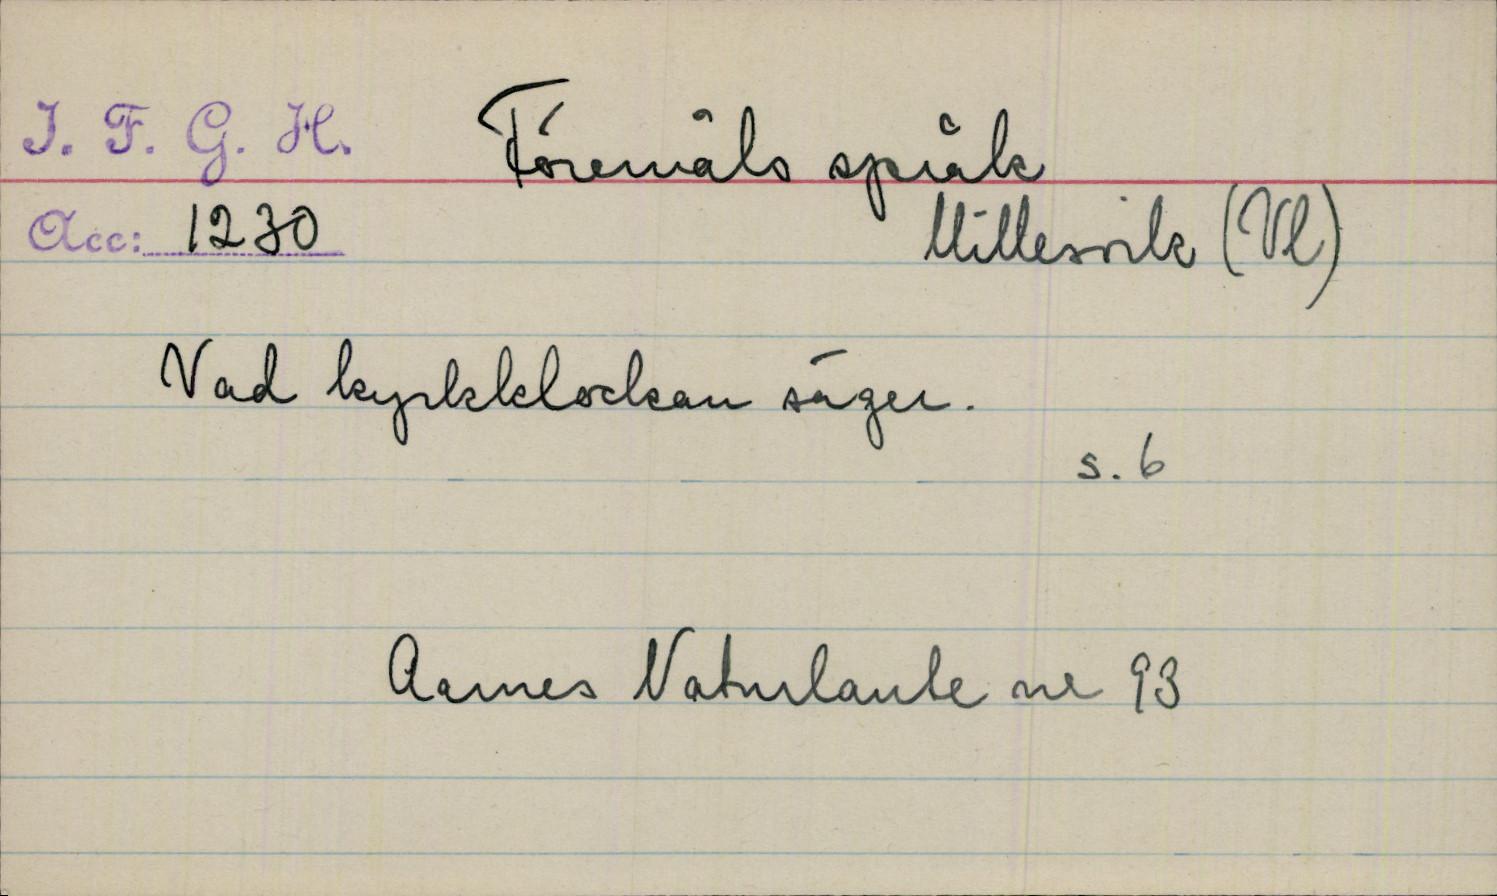 I. F. G. H. Föremåls språk
Acc: 1230 Millesvik (Vl)
Vad kyrkklockan säger.
s. 6
Aarnes Naturlaute nr 93